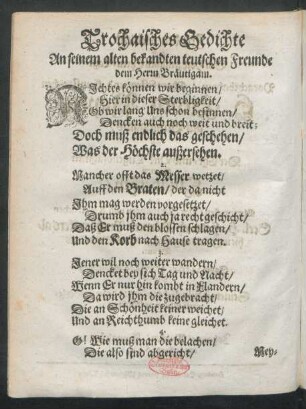 Trochaisches Gedichte
An seinem alten bekandten teutschen Freunde
dem Herrn Bräutigam.
NIchtes können wir beginnen/
Hier in dieser Sterbligkeit/
Ob wir lang Uns schon besinnen/
Dencken auch noch weit und breit:
Doch muß endlich das geschehen/
Was der Höchste außersehen.
2.
Mancher offt das Messer wetzet/
Auff den Braten/ der da nicht
Ihm mag werden vorgesetzet/
Drumb ihm auch ja recht geschicht/
Daß Er muß den blossen schlagen/
Und den Korb nach Hause tragen.
3.
Jener wil noch weiter wandern/
Dencket bey sich Tag und Nacht/
Wenn Er nur hin komht in Flandern/
Da wird ihm die zugebracht/
Die an Schönheit keiner weichet/
Und an Reichthumb keine gleichet.
4.
O! Wie muß man die belachen/
Die also sind abgericht/
Mey-